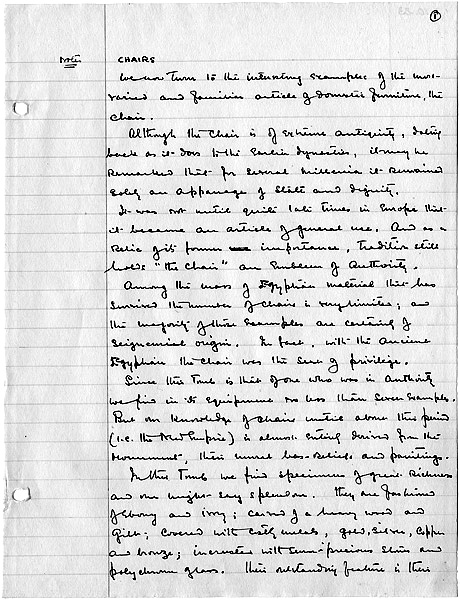 1
Notes
CHAIRS
We now turn to the interesting examples of the most
varied and familiar article of domestic furniture, the
Chair.
Although the Chair is of extreme antiquity, dating
back as it does to the Earlier dynasties, it may be
remarked that for several millenia it remained
solely an appanage of State and dignity.
It was not until quite late times in Europe that
it became an article of general use. And as a
relic of its former importance, tradition still
holds "the Chair" an Emblem of Authority.
Among the mass of Egyptian material that has
survived the number of chairs is very limited; and
the majority of those examples are certainly of
Seigneurial origin. In fact, with the Ancient
Egyptians the chair was the seat of privilege.
Since this Tomb is that of one who was in Authority
we find in its Equipment no less than seven examples.
But our knowledge of Chairs until about this period
(i.e. the New Empire) is almost entirely derived from the
Monuments, their mural bas-reliefs and paintings.
In this Tomb we find specimens of great richness
and one might say splendour. They are fashioned
of Ebony and ivory; carved of a heavy wood and
Gilt; covered with costly metals, gold, silver, copper
and bronze; incrusted with semi-precious stones and
polychrome glass. Their outstanding feature is their